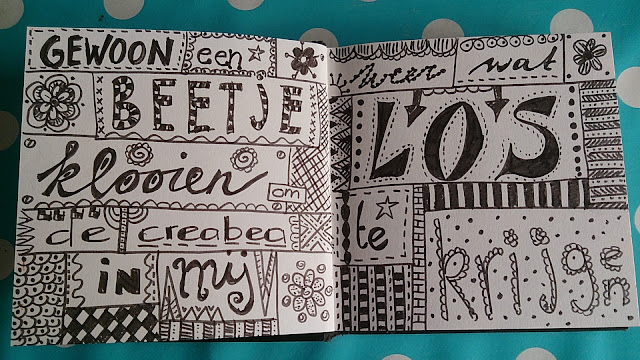 GEWOON een
BEETJE
klooien om
de creabea
in mij
weer wat
LOS
te
Krijgen